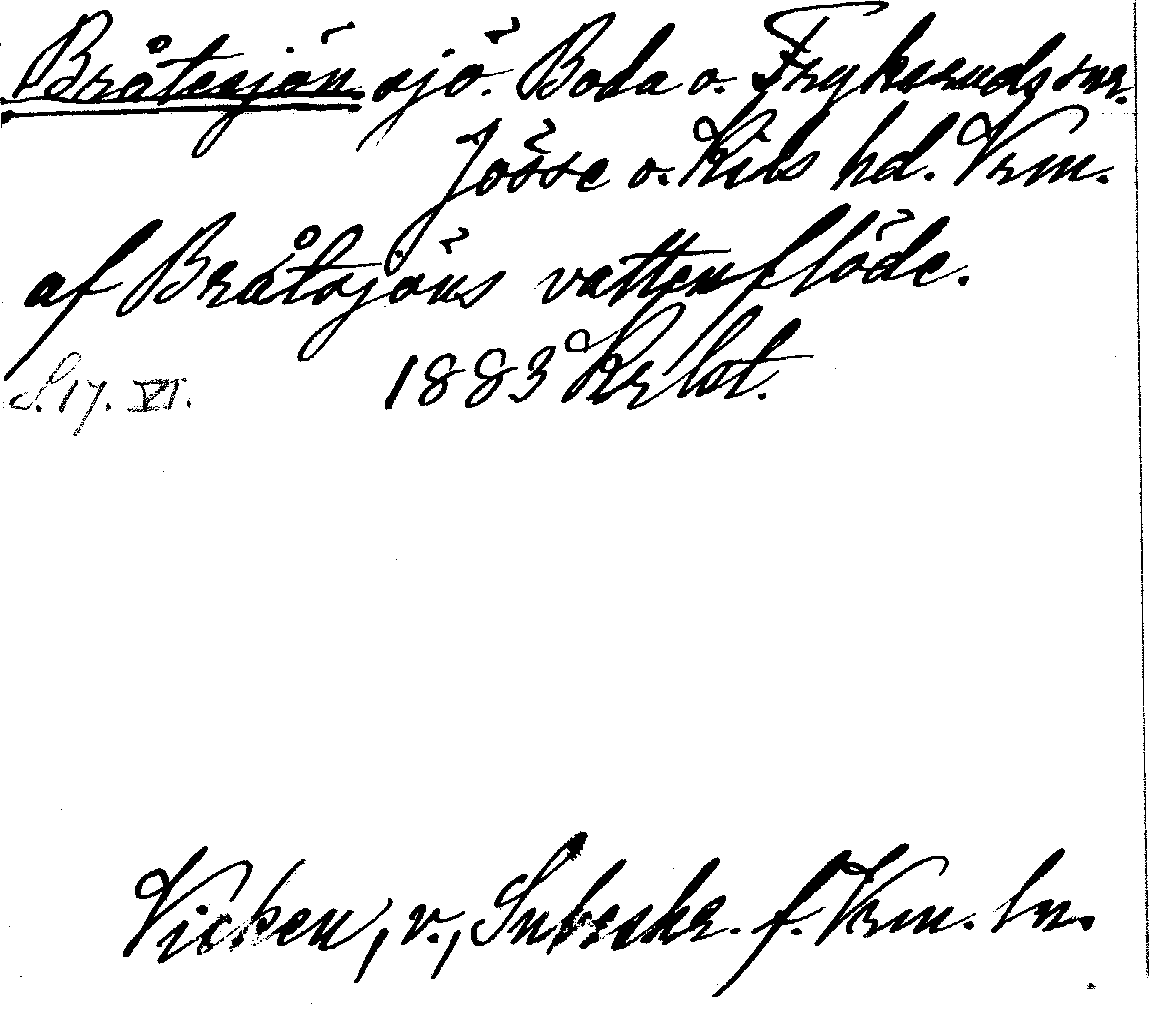 Bråtesjön sjö. Boda o. Frykeruds snr.
Jösse o. Kils hd. Vrm.
af Bråtsjöns vattenflöde.
S. 17. VI. 1883 Krlst.
Vicken, v., Inbeskr. f. Vrm. ln.